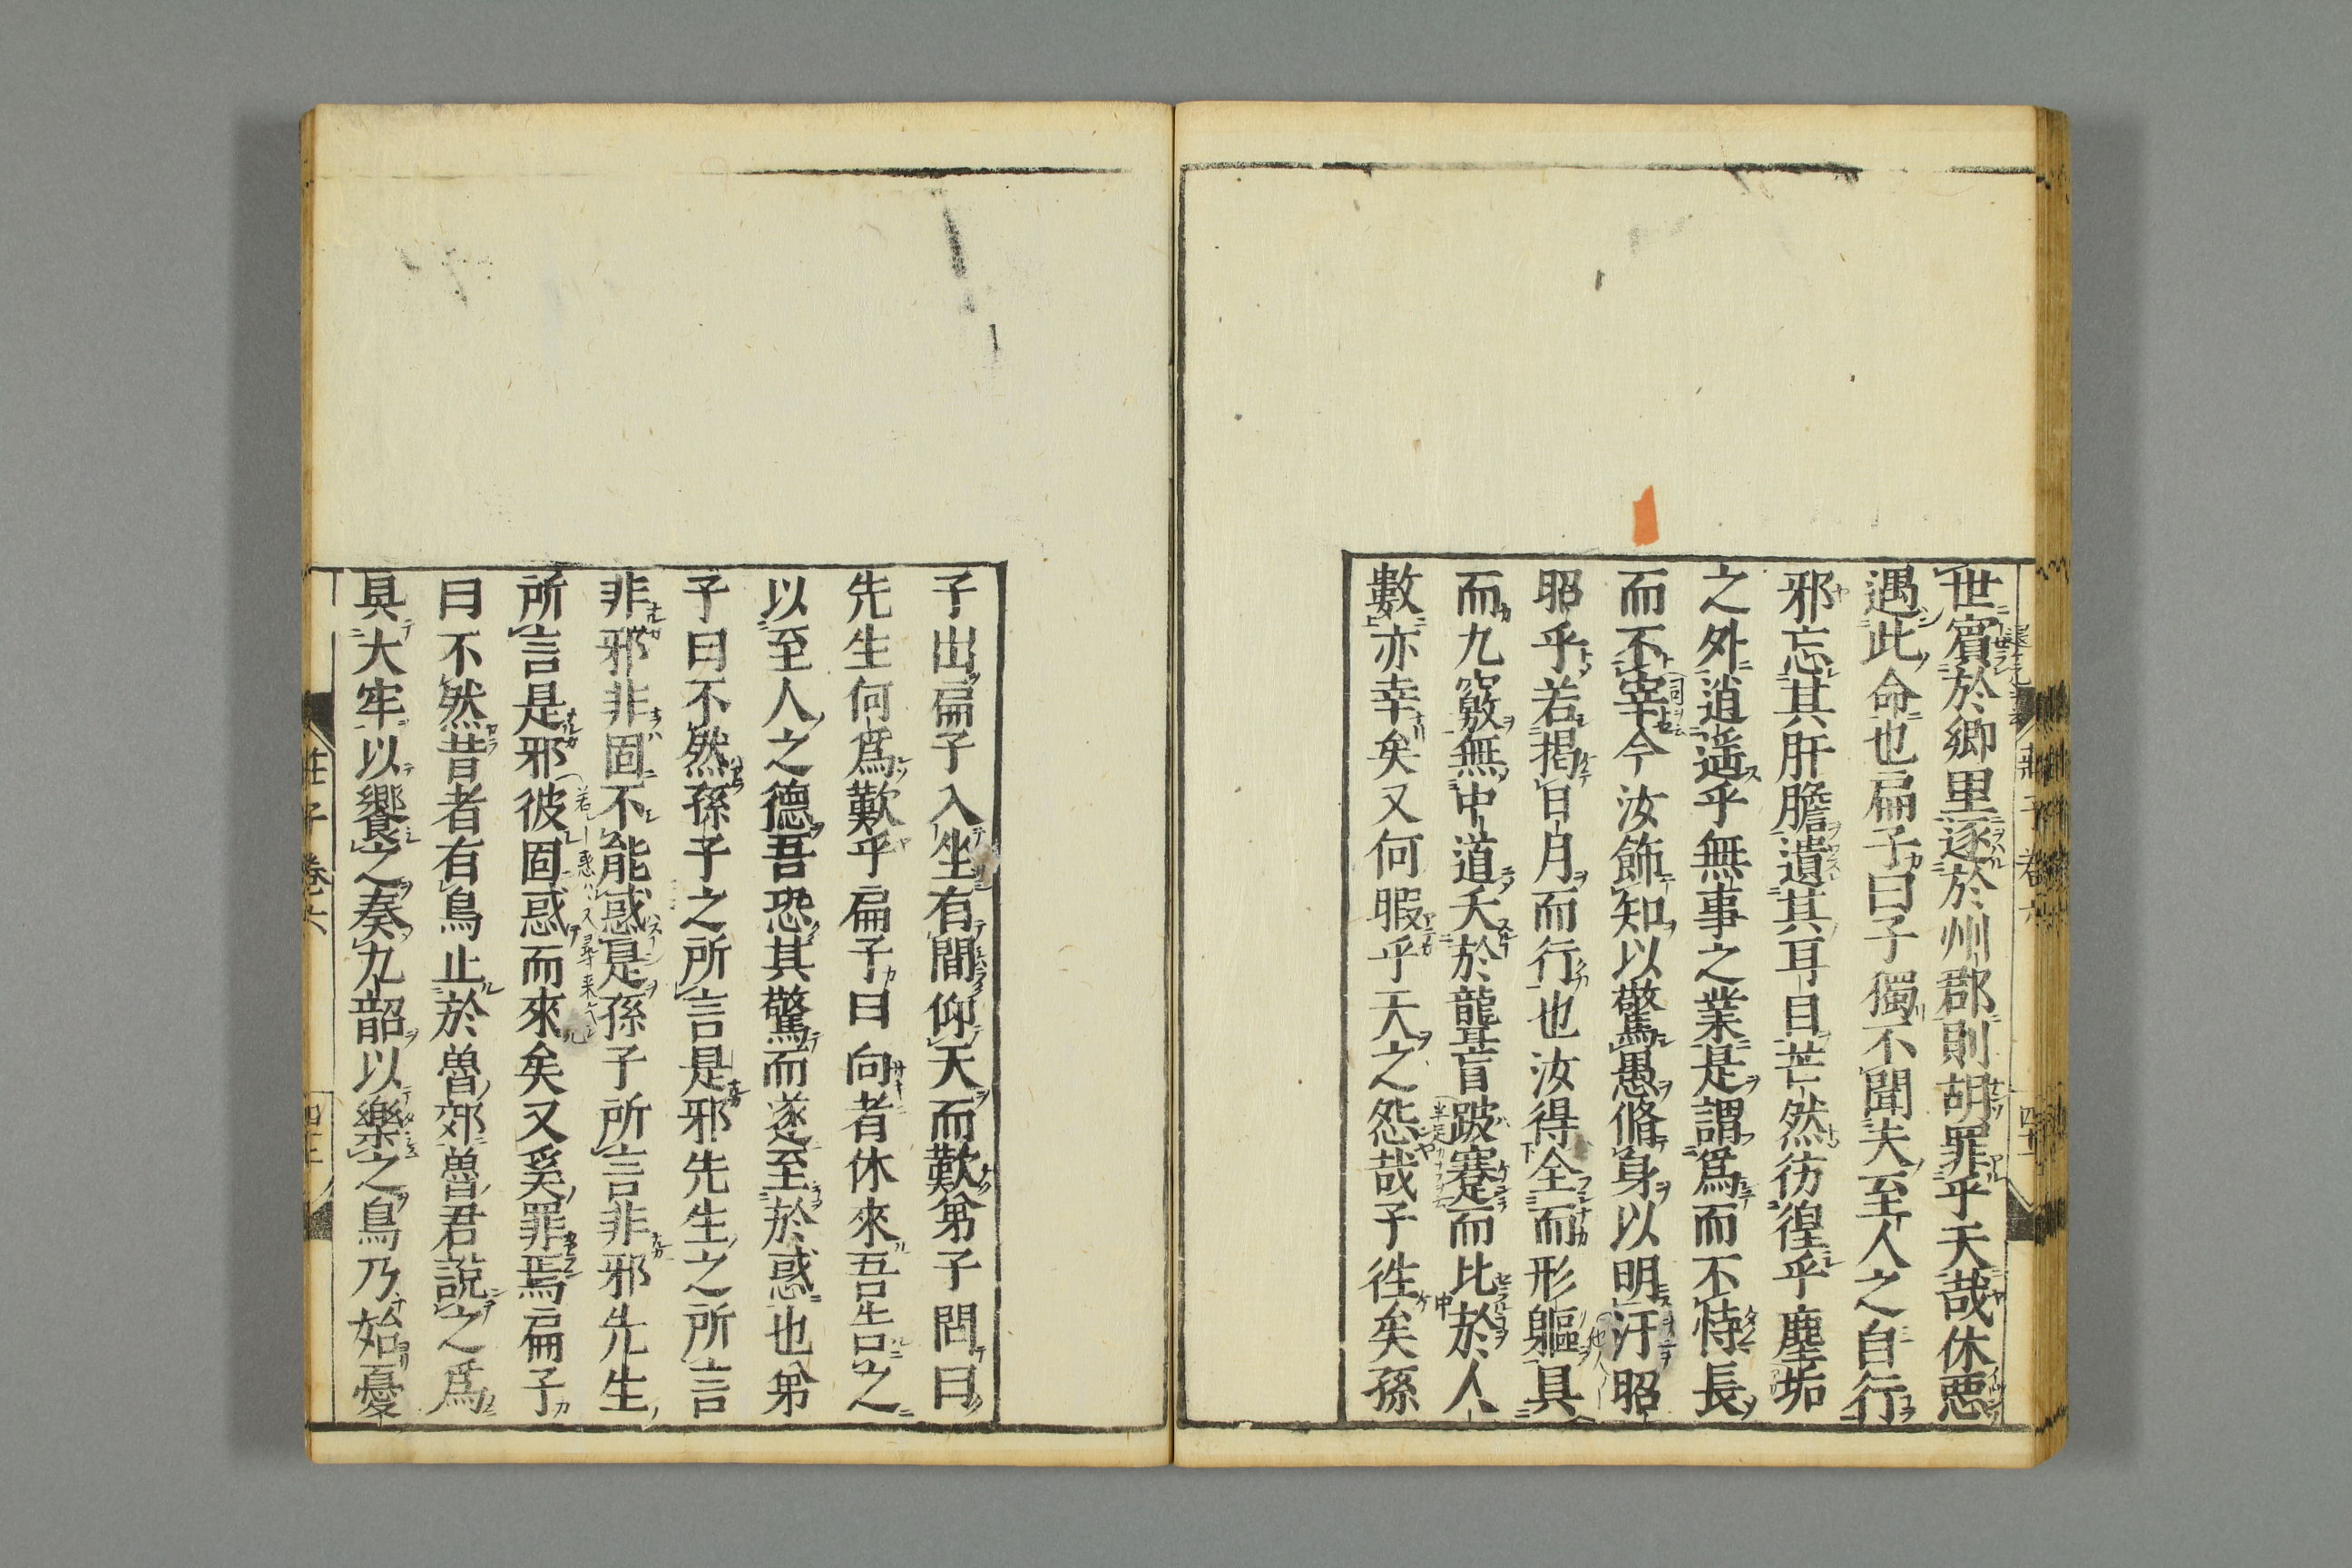 世賓於鄉里逐於州郡則胡罪乎天哉休惡
遇此命也扁子曰子獨不聞夫至人之自行
邪忘其肝膽遺其耳目芒然彷徨乎塵垢
之外逍遥乎無事之業是謂爲而不恃長
而不宰今汝飾知以驚愚脩身以明汙昭
昭乎若揭日月而行也汝得全而形軀具
而九竅無中道夭於聾盲跛蹇而比於人
數亦幸矣又何暇乎天之怨哉子徃矣孫
子出扁子入坐有間仰天而歎弟子問曰
先生何爲歎乎扁子曰向者休來吾告之
以至人之德吾恐其驚而遂至於惑也弟
子曰不然孫子之所言是邪先生之所言
非邪非固不能惑是孫子所言非邪先生
所言是邪彼固惑而來矣又奚罪焉扁子
曰不然昔者有鳥止於魯郊魯君説之爲
具大牢以饗之奏九韶以樂之鳥乃始憂
莊子 卷六